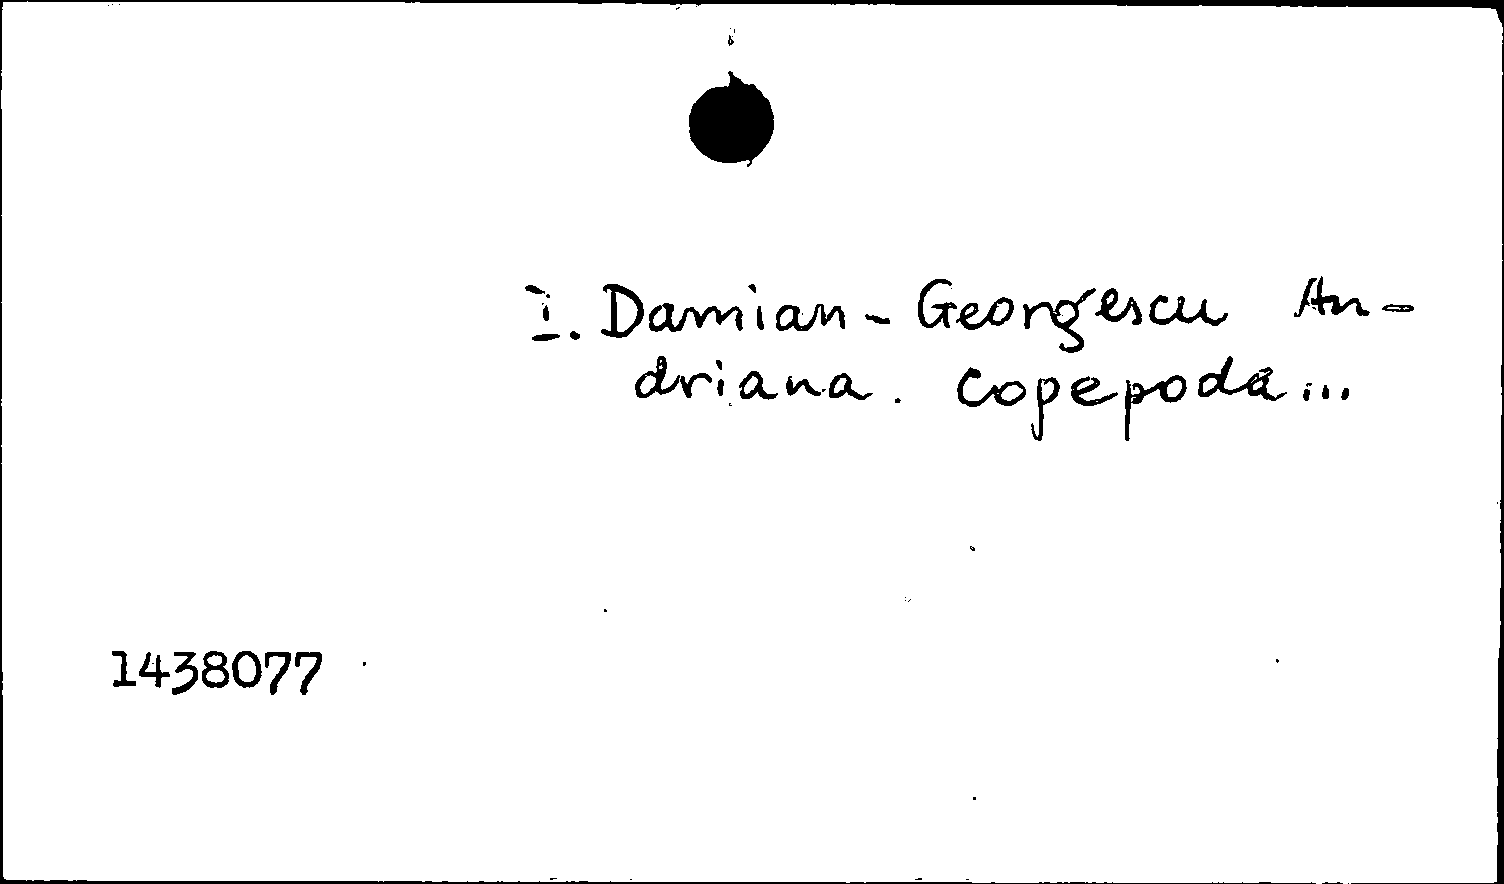 I. Damian-Georgescu An-
driana. Copepoda...
1438077